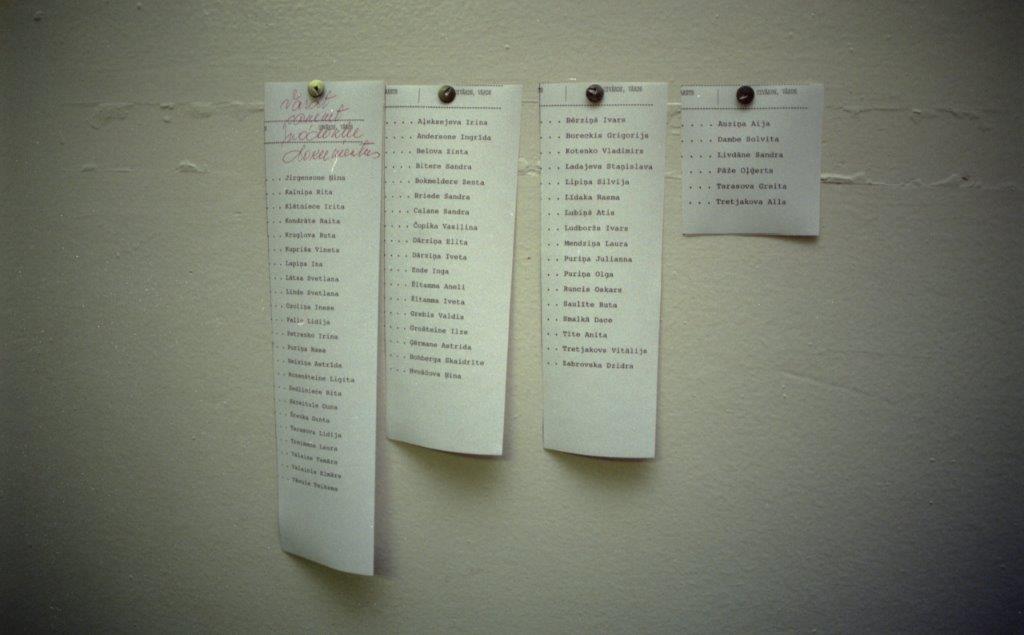 Varat
saņemt
nodokļu
dokumentus
UZVĀRDS, VĀRDS
. . Jirgensone Ņina
. . Kalniņa Rita
. . Klētniece Irita
. . Kondrāte Raita
. . Kruglova Ruta
. . Kupriša Vineta
. . Lapiņa Ina
. . Lātsa Svetlana
. . Linde Svetlana
. . Ozoliņa Inese
. . Petrenko Irina
. . Puriņa Rasa
. . Rozenšteine Ligita
. . Sedliniece Rita
. . Tarasova Lidija
. . Treimane Laura
. . Valaine Tamāra
. . Valainis Elmārs
UZVĀRDS, VĀRDS
. . . . Aļeksejeva Irina
. . . . Andersone Ingrīda
. . . . Belova Zinta
. . . . Bitere Sandra
. . . . Bokmeldere Zenta
. . . . Briede Sandra
. . . . Calane Sandra
. . . . Čopika Vasiļina
. . . . Dārziņa Ēlita
. . . . Dārziņa Iveta
. . . . Ende Inga
. . . . Ēltamma Aneli
. . . . Ēltamma Iveta
. . . . Grebis Valdis
. . . . Grošteine Ilze
. . . . Ģērmane Astrida
. . . . Hohberga Skaidrīte
. . . . Hvošova Ņina
UZVĀRDS, VĀRDS
. . Bērziņš Ivars
. . Boreckis Grigorijs
. . Kotenko Vladimirs
. . Ladajevs Staņislavs
. . Lipiņa Silvija
. . Līdaka Rasma
. . Lubiņš Atis
. . Ludboržs Ivars
. . Mendziņa Laura
. . Puriņa Julianna
. . Puriņa Olga
. . Runcis Oskars
. . Saulīte Ruta
. . Smalkā Dace
. . Tīte Anita
. . Tretjakovs Vitālijs
. . Zabrovska Dzidra
UZVĀRDS, VĀRDS
. . . Auziņa Aija
. . . Dambe Solvita
. . . Livdāne Sandra
. . . Pāže Oļģerts
. . . Tarasova Graita
. . . Tretjakova Alla